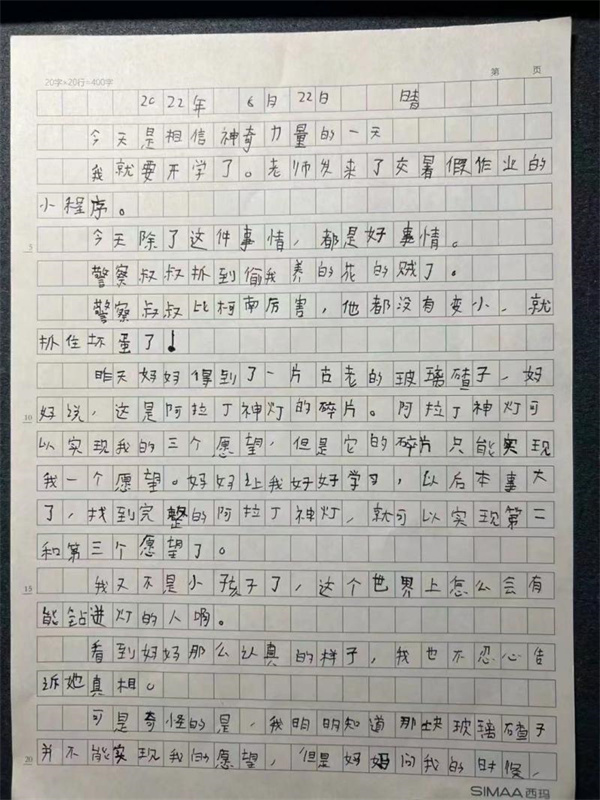 20字×20行=400字
第 页
2022年 6月22日 晴
今天是相信神奇力量的一天
我就要开学了。老师发来了交暑假作业的
小程序。
今天除了这件事情，都是好事情。
5
警察叔叔抓到偷我养的花的贼了。
警察叔叔比柯南厉害，他都没有变小，就
抓住坏蛋了！
昨天好好得到了一片古老的玻璃碴子，好
好说，这是阿拉丁神灯的碎片。阿拉丁神灯可
10
以实现我的三个愿望，但是它的碎片只能实现
我一个愿望。好好让我好好学习，以后本事大
了，找到完整的阿拉丁神灯，就可以实现第二
和第三个愿望了。
我又不是小孩子了，这个世界上怎么会有
15
能钻进灯的人啊。
看到好好那么认真的样子，我也不忍心告
诉她真相。
可是奇怪的是，我明明知道那块玻璃碴子
并不能实现我的愿望，但是好好问我的时候，
20
SIMAA西玛